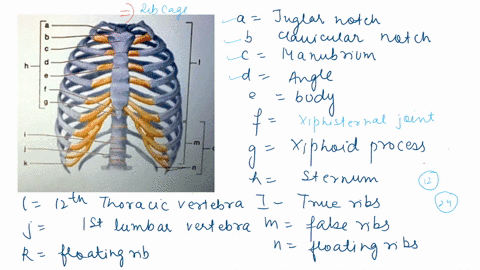 Rib cage
a = Juglar notch
b Clavicular notch
c = Manubrium
d = Angle
e = body
f = Xiphisternal joint
g = Xiphoid process
h = Sternum
12
24
i = 12th Thoracic vertebra I - True ribs
j = 1st lumbar vertebra m = false ribs
k = floating rib n = floating ribs
a
b
c
d
e
f
g
h
i
j
k
l
m
n